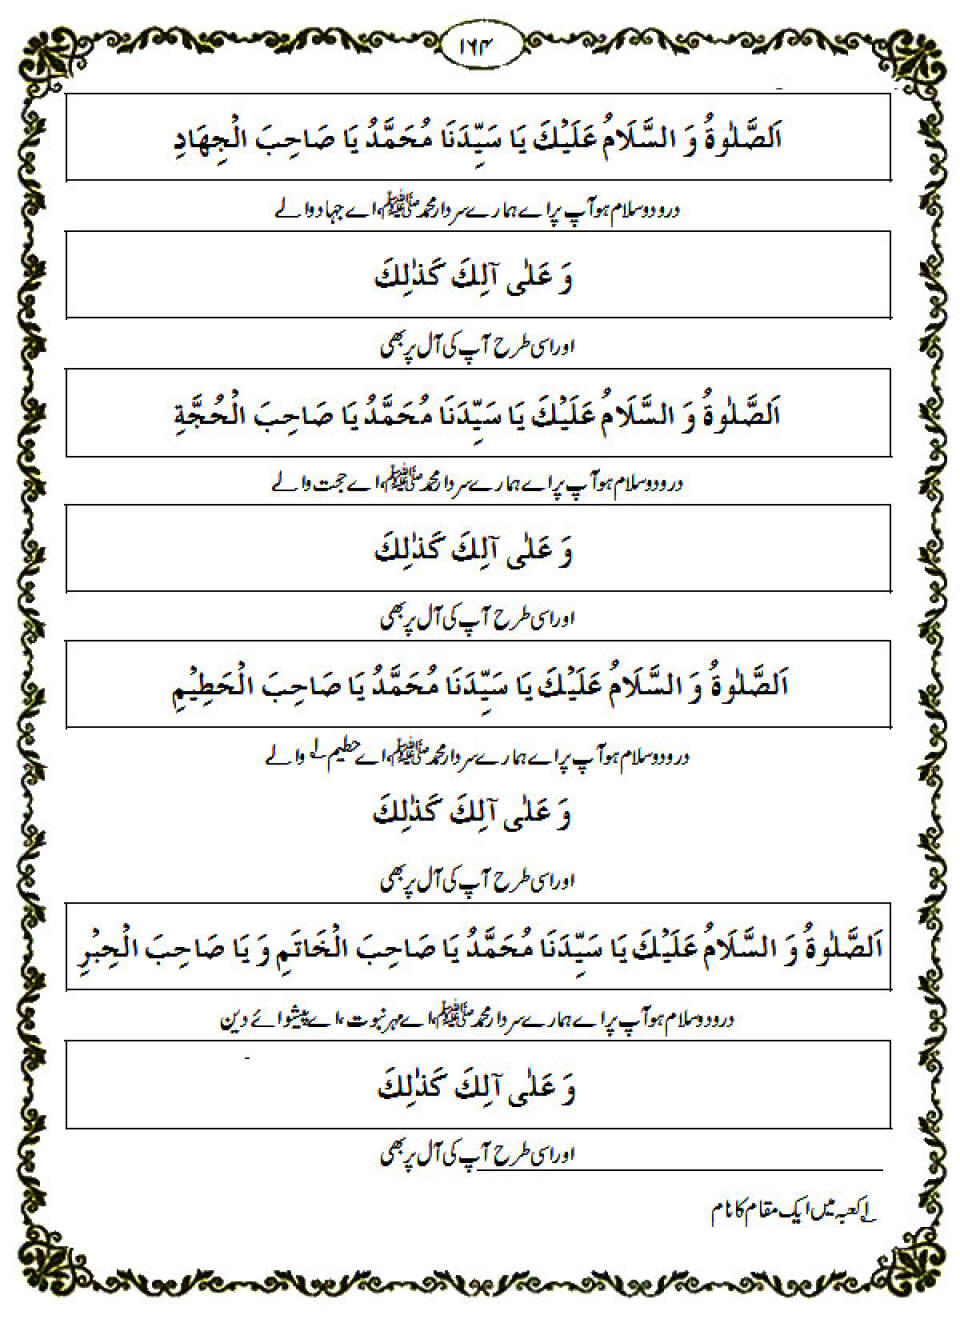 ۱۶۴
اَلصَّلٰوةُ وَ السَّلَامُ عَلَيْكَ يَا سَيِّدَنَا مُحَمَّدُ يَا صَاحِبَ الْجِهَادِ
درود و سلام ہو آپ پر اے ہمارے سردار محمد ﷺ، اے جہاد والے
وَ عَلٰى آلِكَ كَذٰلِكَ
اور اسی طرح آپ کی آل پر بھی
اَلصَّلٰوةُ وَ السَّلَامُ عَلَيْكَ يَا سَيِّدَنَا مُحَمَّدُ يَا صَاحِبَ الْحُجَّةِ
درود و سلام ہو آپ پر اے ہمارے سردار محمد ﷺ، اے حجت والے
وَ عَلٰى آلِكَ كَذٰلِكَ
اور اسی طرح آپ کی آل پر بھی
اَلصَّلٰوةُ وَ السَّلَامُ عَلَيْكَ يَا سَيِّدَنَا مُحَمَّدُ يَا صَاحِبَ الْحَطِيْمِ
درود و سلام ہو آپ پر اے ہمارے سردار محمد ﷺ، اے حطیم لے والے
وَ عَلٰى آلِكَ كَذٰلِكَ
اور اسی طرح آپ کی آل پر بھی
اَلصَّلٰوةُ وَ السَّلَامُ عَلَيْكَ يَا سَيِّدَنَا مُحَمَّدُ يَا صَاحِبَ الْخَاتَمِ وَ يَا صَاحِبَ الْحِبْرِ
درود و سلام ہو آپ پر اے ہمارے سردار محمد ﷺ، اے مہر نبوت، اے پیشوائے دین
وَ عَلٰى آلِكَ كَذٰلِكَ
اور اسی طرح آپ کی آل پر بھی
لے کعبہ میں ایک مقام کا نام